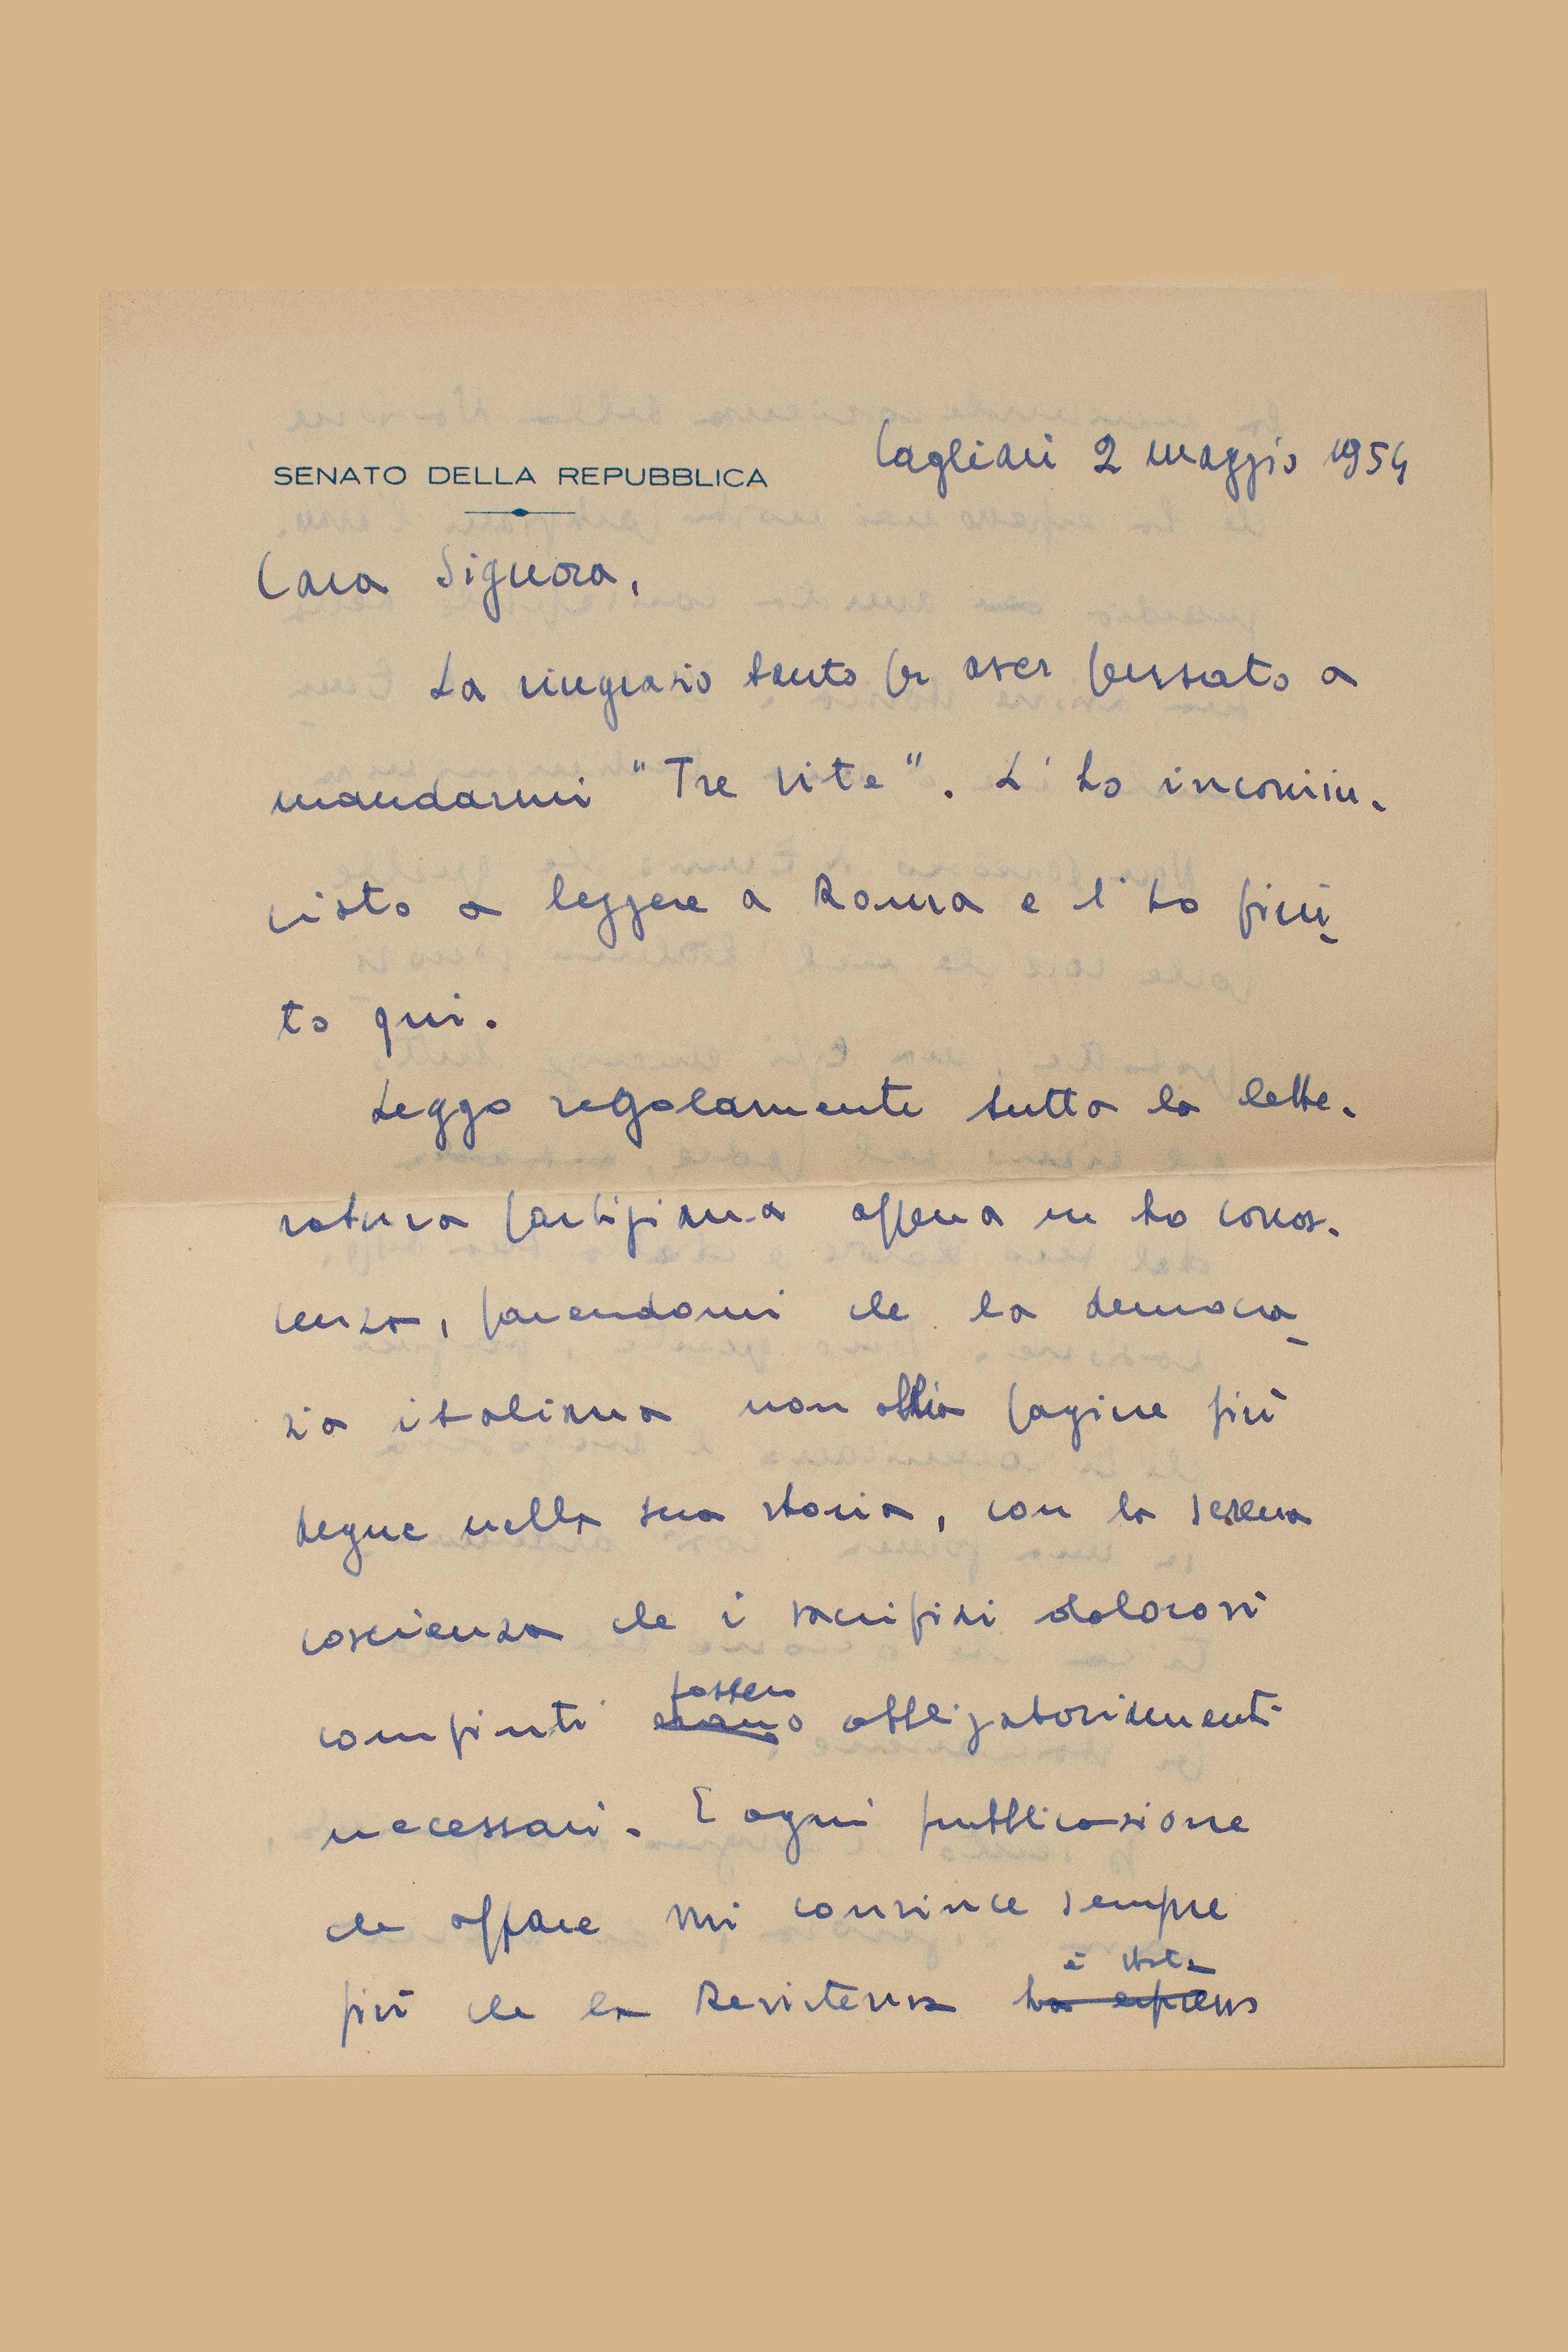 SENATO DELLA REPUBBLICA
Cagliari 2 maggio 1954
Cara Signora,
La ringrazio tanto per aver pensato a
mandarmi "Tre vite". L'ho incomin-
ciato a leggere a Roma e l'ho fini-
to qui.
Leggo regolarmente tutta la lette-
ratura partigiana appena ne ho conos-
cenza, parendomi che la democra-
zia italiana non abbia pagine più
degne nella sua storia, con la serena
coscienza che i sacrifizi dolorosi
fossero
compiuti erano obbligatoriamente
necessari. E ogni pubblicazione
che appare mi convince sempre
è stata
più che la Resistenza ha espresso